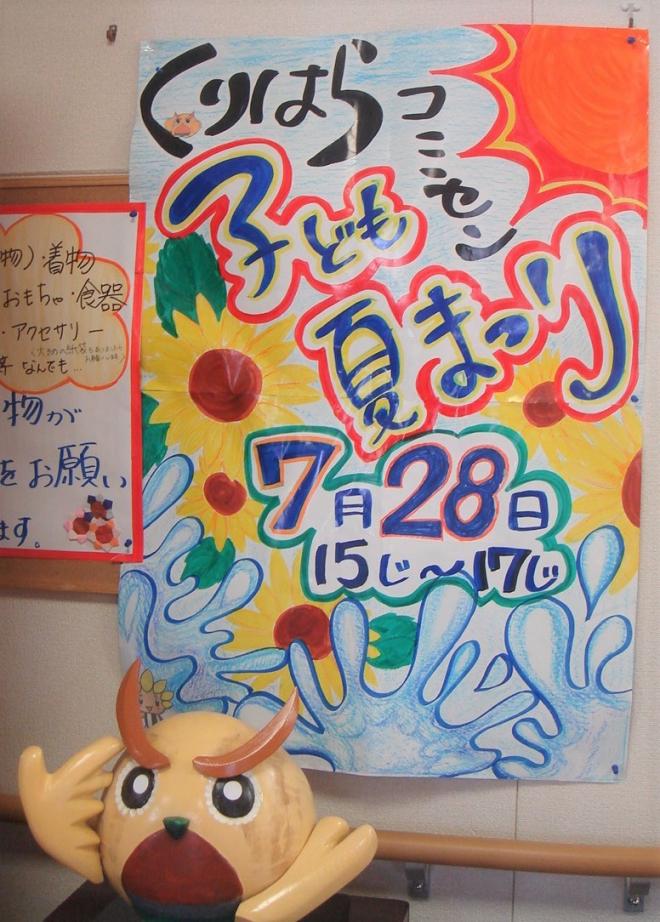 くりはらコミセン
子ども
夏まつり
7月28日
15じ～17じ
物)・着物
おもちゃ・食器
・アクセサリー
等 なんでも…
物が
をお願い
ます。